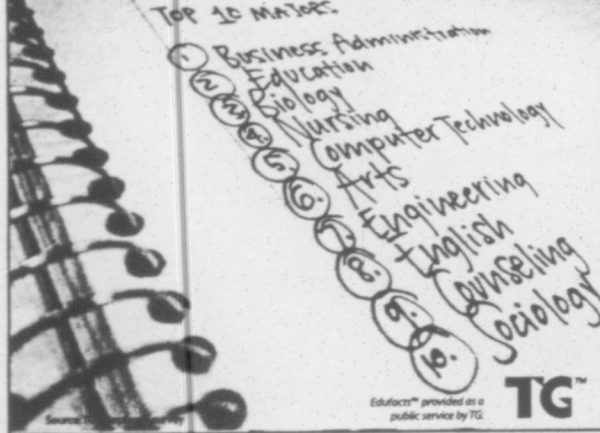 TOP 10 MAJORS
1. Business Administration
2. Education
3. Biology
4. Nursing
5. Computer Technology
6. Arts
7. Engineering
8. English
9. Counseling
10. Sociology
Edufacts™ provided as a
public service by TG.
TG™
Source: Survey